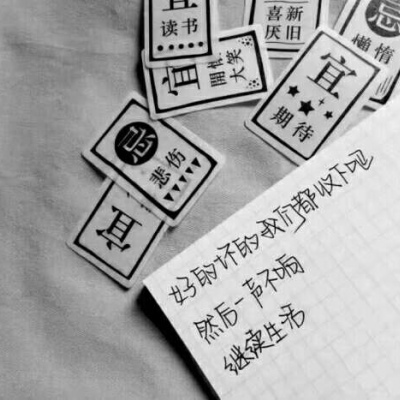 宜
读书
喜新
厌旧
忌
懒惰
宜
大笑
宜
期待
忌
悲伤
宜
好的坏的我们都收下吧
然后一声不响
继续生活